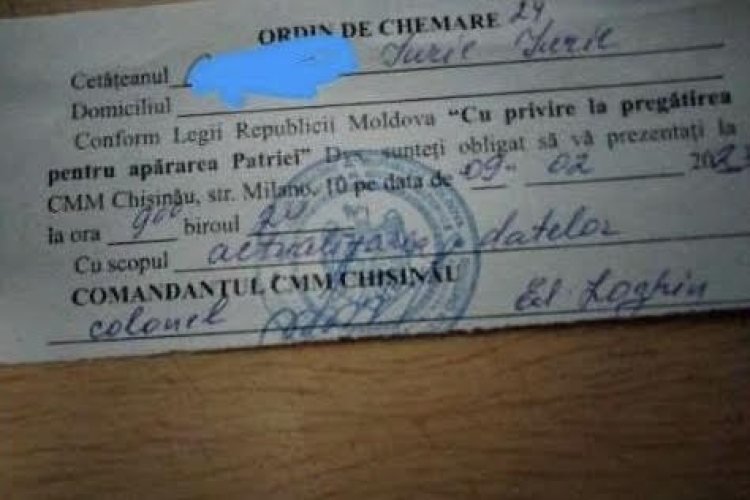 ORDIN DE CHEMARE 24
Cetățeanul Iurie Iurie
Domiciliul
Conform Legii Republicii Moldova "Cu privire la pregătirea
pentru apărarea Patriei" Dvs. sunteți obligat să vă prezentați la
CMM Chișinău, str. Milano, 10 pe data de 09 02 202
la ora 9 00 biroul
Cu scopul actualizarea datelor
COMANDANTUL CMM CHIȘINĂU
colonel Ed. Loghin